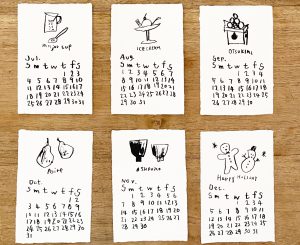 Jul.
S m t w t f S
1 2 3
4 5 6 7 8 9 10
11 12 13 14 15 16 17
18 19 20 21 22 23 24
25 26 27 28 29 30 31
ICECREAM
Aug.
S m t w t f S
1 2 3 4 5 6 7
8 9 10 11 12 13 14
15 16 17 18 19 20 21
22 23 24 25 26 27 28
29 30 31
OTSUKIMI
Sep.
S m t w t f S
1 2 3 4
5 6 7 8 9 10 11
12 13 14 15 16 17 18
19 20 21 22 23 24 25
26 27 28 29 30
Oct.
S m t w t f S
1 2
3 4 5 6 7 8 9
10 11 12 13 14 15 16
17 18 19 20 21 22 23
24 25 26 27 28 29 30
31
Nov.
S m t w t f S
1 2 3 4 5 6
7 8 9 10 11 12 13
14 15 16 17 18 19 20
21 22 23 24 25 26 27
28 29 30
Happy
Dec.
S m t w t f S
1 2 3 4
5 6 7 8 9 10 11
12 13 14 15 16 17 18
19 20 21 22 23 24 25
26 27 28 29 30 31